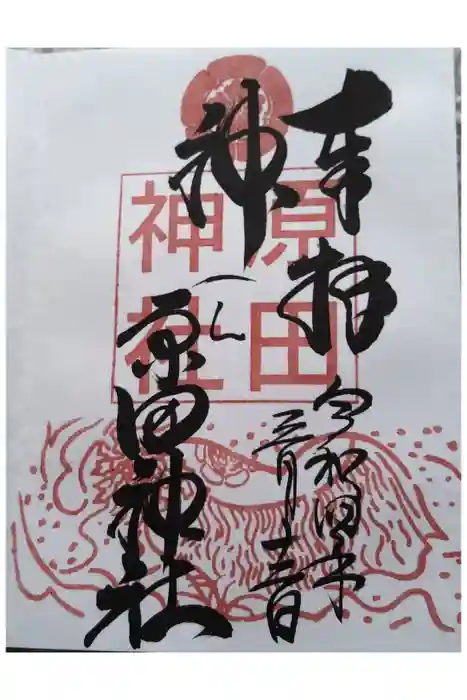 奉拝
令和四年
三月日
神
原田神社
原田
神社